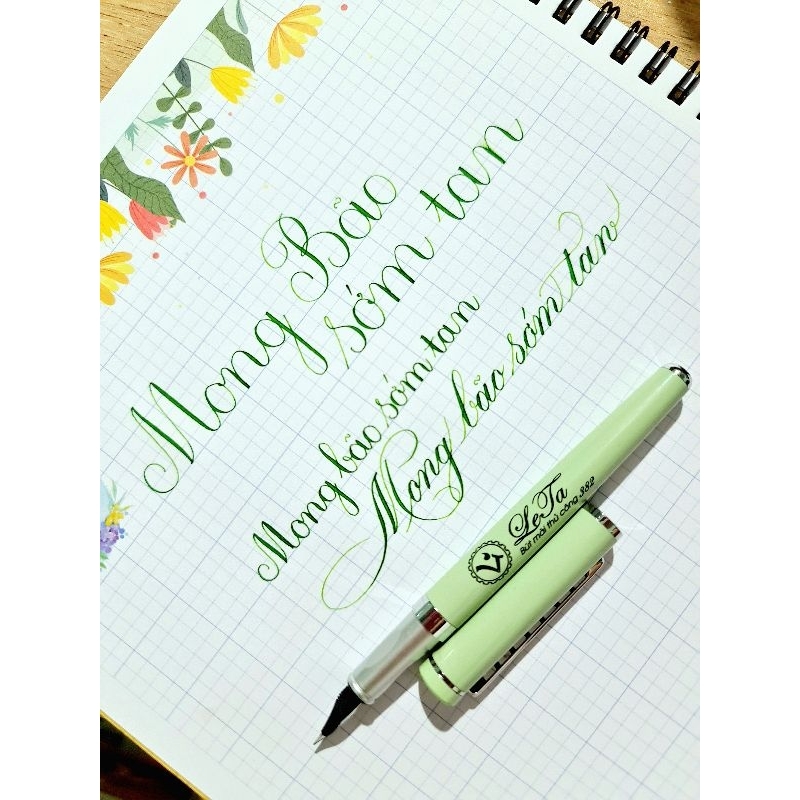 Mong Bão
sớm tan
Mong bão sớm tan
Mong bão sớm tan
LeTa
Bút mài thủ công 382